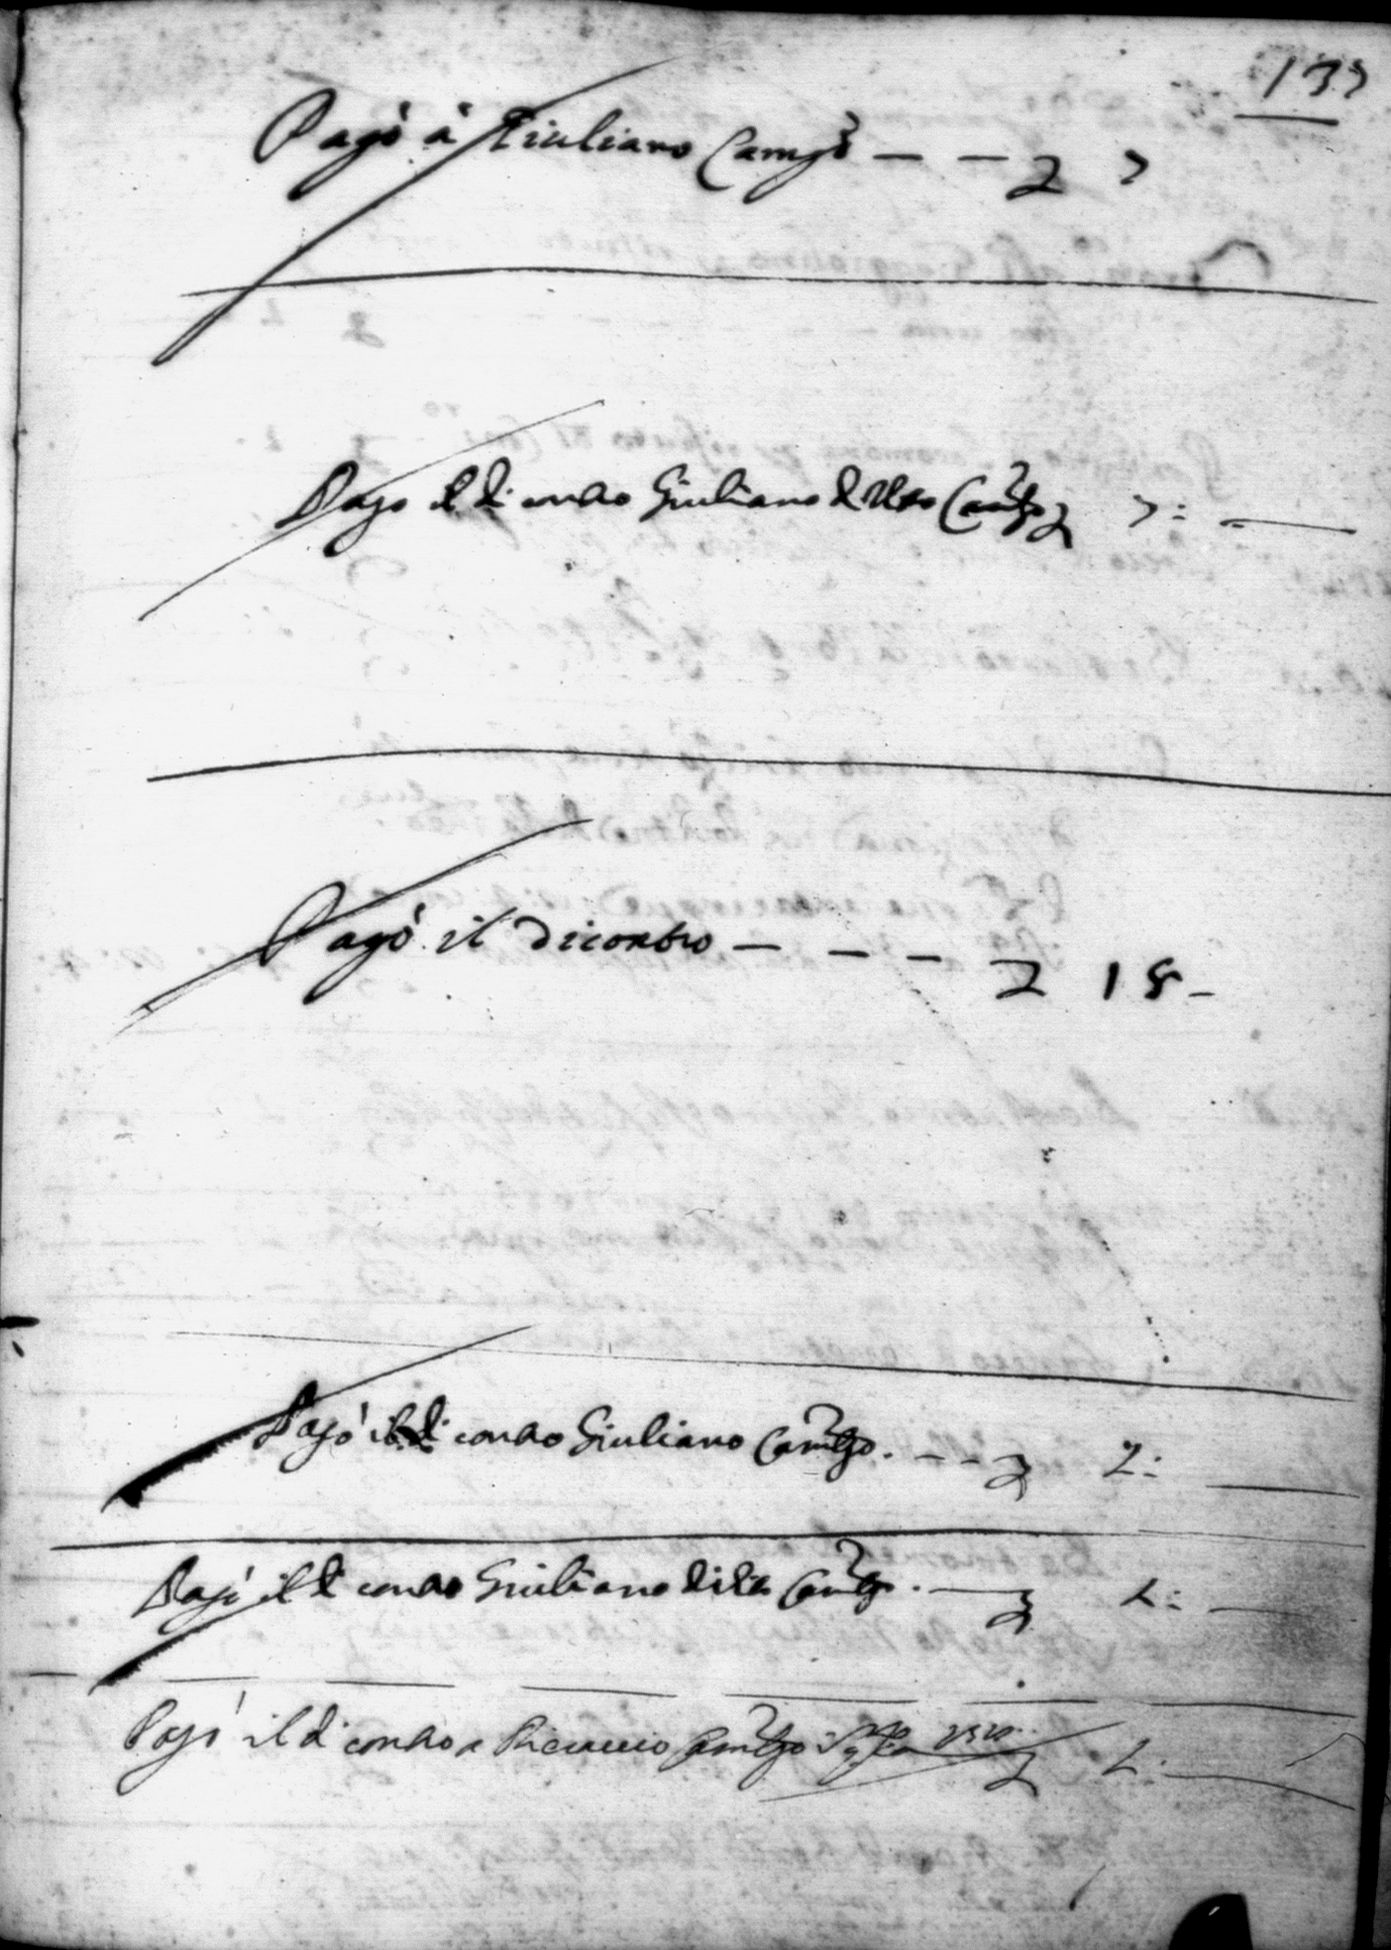 133
Pagò à Giuliano Camgo — — 7
Pago il di contro Giuliano d detto Camgo 7: —
Pagò il dicontro — — — 18 —
Pagò il di contro Giuliano Camgo. — — 2: —
Pagò il di contro Giuliano ditto Camgo. — 1: —
Pagò il di contro a Ricciaccio Camgo